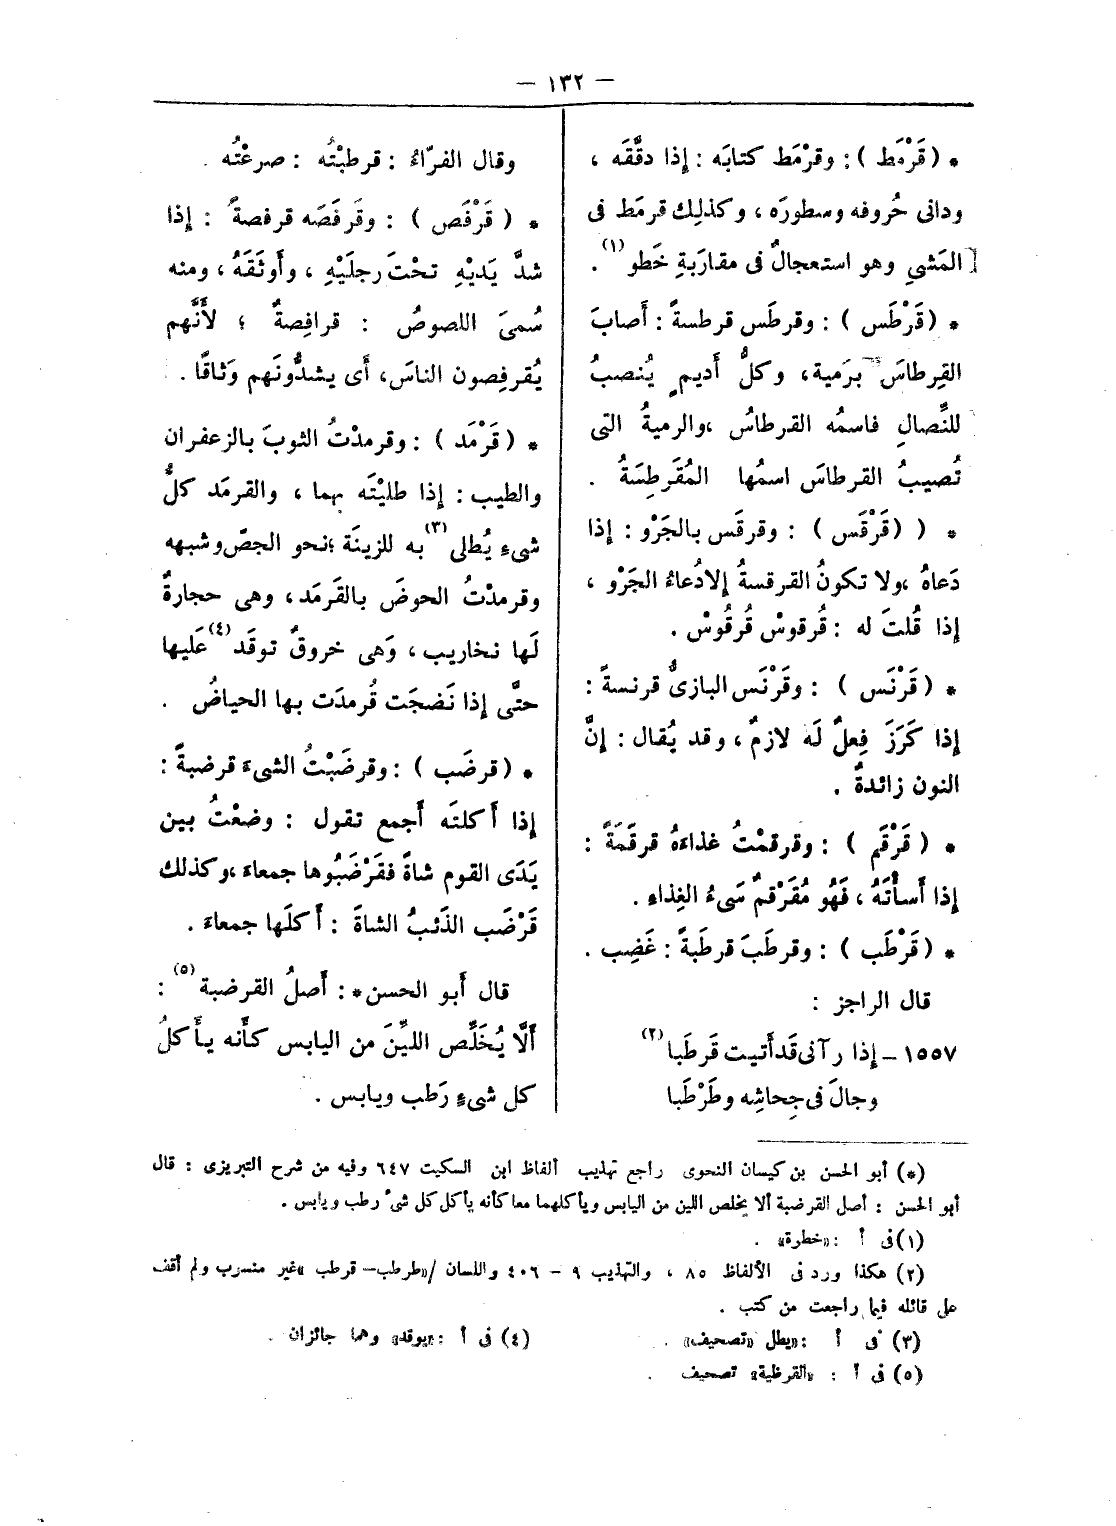 — ١٣٢ —
* ( قَرْمَط ) : وقرْمَط كتابَه : إذا دقَّقَه ،
ودانى حُروفه وسطورَه ، وكذلِك قرمَط فى
المَشىِ وهو استعجالٌ فى مقارَبةِ خَطو (١) .
* ( قَرْطَس ) : وقرطَس قرطسةً : أَصابَ
القِرطاسَ برَمية ، وكلُّ أَديمٍ يُنصبُ
للنِّصالِ فاسمُه القرطاسُ ، والرميةُ التى
تُصيبُ القرطاسَ اسمُها المُقَرطِسَةُ .
* ( ( قَرْقَس ) : وقرقَس بالجَرْو : إذا
دَعاهُ ، ولا تكونُ القرقسةُ إلادُعاءُ الجَرْو ،
إذا قُلتَ له : قُرقوسْ قُرقُوسْ .
* ( قَرْنَس ) : وقَرْنَس البازىُّ قرنسةً :
إذا كَرَزَ فِعلٌ لَه لازمٌ ، وقد يُقال : إنَّ
النون زائدةٌ .
* ( قَرْقَم ) : وقرقمْتُ غذاءَهُ قرقَمَةً :
إذا أَسأْتَهُ ، فَهُو مُقَرْقمٌ سَىءُ الغِذاءِ .
* ( قَرْطَب ) : وقرطَبَ قرطَبةً : غَضِب .
قال الراجز :
١٥٥٧ – إذا رآنى قَدأَتيت قَرطَبا (٢)
وجالَ فى جِحاشِه وطَرْطَبا
وقال الفرّاءُ : قرطبْتُه : صرعْتُه .
* ( قَرْفَص ) : وقَرفَصَه قرفصةً : إذا
شدَّ يَديْهِ تحْتَ رجلَيْهِ ، وأَوثَقَهُ ، ومنه
سُمىَ اللصوصُ : قرافِصةٌ ؛ لأَنَّهم
يُقرفِصون الناسَ ، أَى يشدُّونَهم وَثاقًا .
* ( قَرْمَد ) : وقرمدْتُ الثوبَ بالزعفران
والطيب : إذا طليْتَه بهما ، والقرمَد كلُّ
شىءٍ يُطلى (٣) به للزينَة ؛ نحو الجصّ وشبهه
وقرمدْتُ الحوضَ بالقَرمَد ، وهى حجارةٌ
لَها نخاريب ، وَهى خروقٌ توقَد (٤) عَليها
حتَّى إذا نَضجَت قُرمدَت بها الحياضُ .
* ( قرضَب ) : وقرضَبْتُ الشىءَ قرضبةً :
إذا أَكلتَه أَجمع تقول : وضعْتُ بين
يَدَى القوم شاةً فقَرْضَبُوها جمعاءَ ، وكذلك
قَرْضَب الذَئبُ الشاةَ : أَكلَها جمعاءَ .
قال أَبو الحسن * : أَصلُ القرضبة (٥) :
أَلَّا يُخَلِّص الليِّنَ من اليابس كأَنه يأَكلُ
كل شىءٍ رَطب ويابس .
(*) أبو الحسن بن كيسان النحوى راجع تهذيب ألفاظ ابن السكيت ٦٤٧ وفيه من شرح التبريزى : قال
أبو الحسن : أصل القرضبة ألا يخلص اللين من اليابس ويأكلهما معا كأنه يأكل كل شىء رطب ويابس .
(١) فى أ : «خطرة» .
(٢) هكذا ورد فى الألفاظ ٨٥ ، والتهذيب ٩ – ٤٠٦ واللسان /«طرطب – قرطب» غير منسرب ولم أقف
على قائله فيما راجعت من كتب .
(٣) فى أ : «يطل «تصحيف» .
(٤) فى أ : «يوقد» وهما جائزان .
(٥) فى أ : «القرظية» تصحيف .